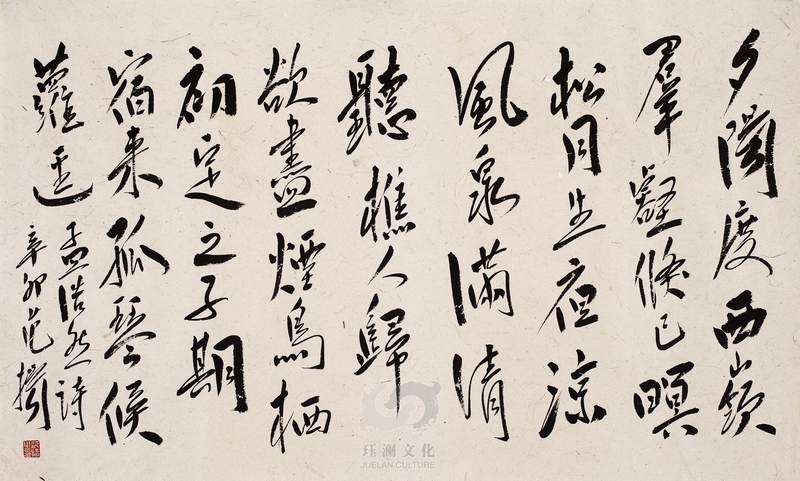 夕陽度西嶺
羣壑倏已暝
松月生夜涼
風泉滿清
聽樵人歸
欲盡煙鳥栖
初定之子期
宿来孤琴候
蘿逕
孟浩然詩
辛卯范
珏澜文化
JUELAN CULTURE